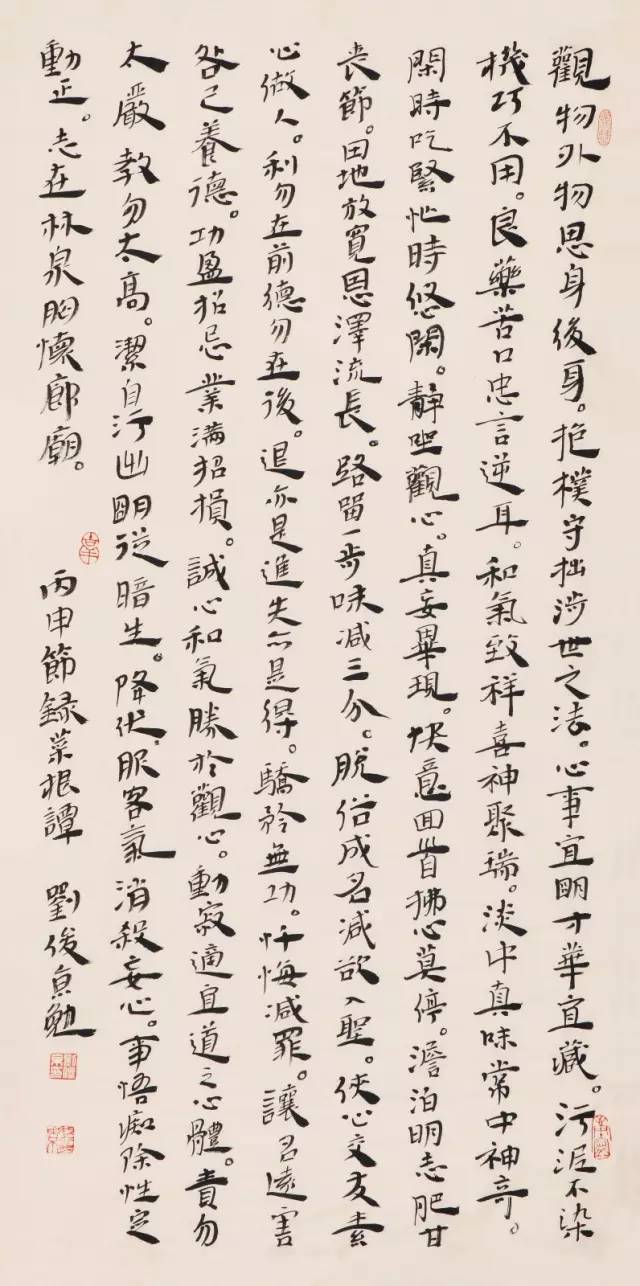 觀物外物思身後身。抱樸守拙涉世之法。心事宜明才華宜藏。污泥不染
機巧不用。良藥苦口忠言逆耳。和氣致祥喜神聚瑞。淡中真味常中神奇。
閑時吃緊忙時悠閑。靜坐觀心。真妄畢現。快意回首拂心莫停。澹泊明志肥甘
喪節。田地放寬恩澤流長。路留一步味減三分。脫俗成名減欲入聖。俠心交友素
心做人。利勿在前德勿在後。退亦是進失亦是得。驕矜無功。忏悔減罪。讓名遠害
咎己養德。功盈招忌業滿招損。誠心和氣勝於觀心。動寂適宜道之心體。責勿
太嚴教勿太高。潔自污出明從暗生。降伏服客氣消殺妄心。事悟痴除性定
動正。志在林泉胸懷廊廟。
丙申節錄菜根譚 劉俊京勉